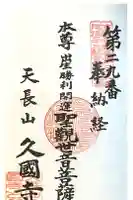 第二九番
奉納経
本尊岸勝利開運聖観世音菩薩
天長山久國寺